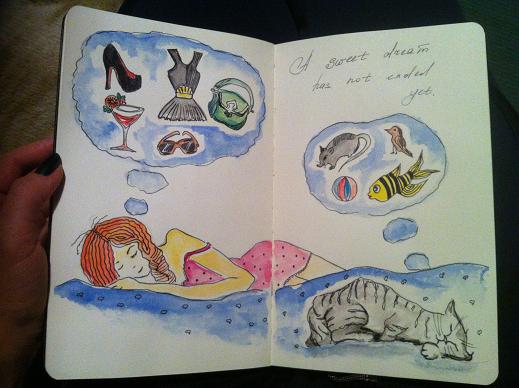 A sweet dream
has not ended
yet.